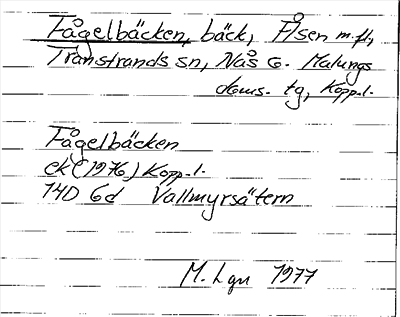 Fågelbäcken, bäck, Flsen m.fl.,
Transtrands sn, Nås o. Malungs
doms. tg, Kopp.l.
Fågelbäcken
ek (1976) Kopp.l.
14D 6d Vallmyrsätern
M. Lgn 1977